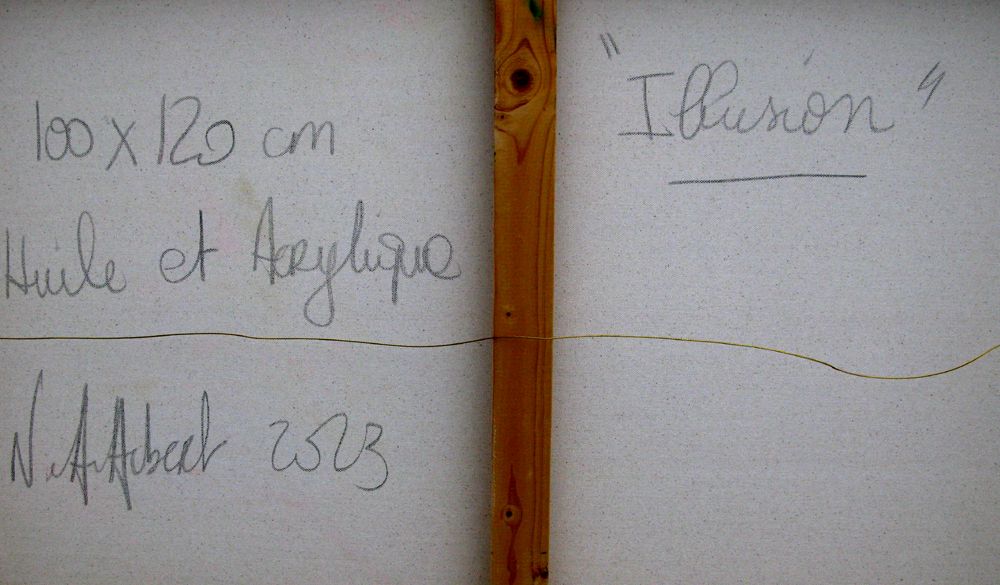 100 x 120 cm
Huile et Acrylique
N.A.Aubert 2023
"Illusion"